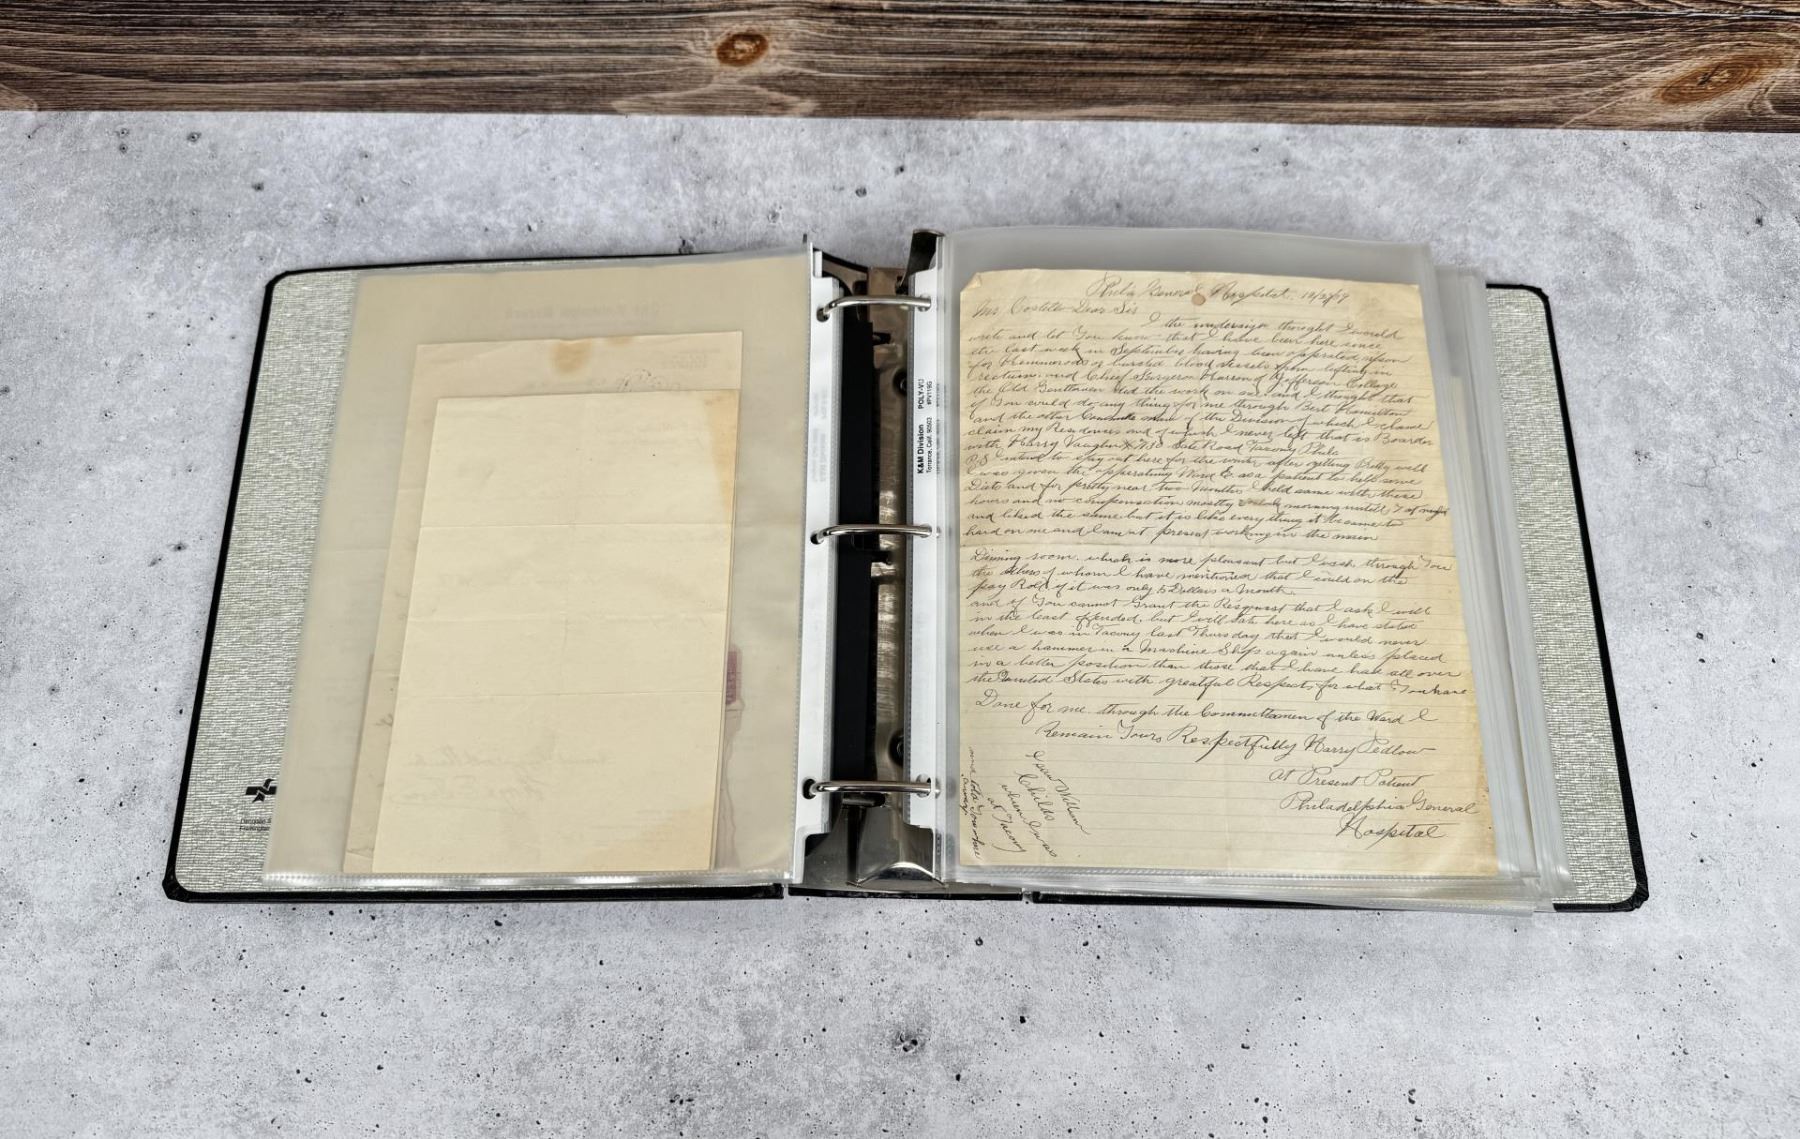 Phila General Hospital. 12/22/19
Mr Costello Dear Sir
I the undersign thought I would
write and let you know that I have been here since
the last week in September having been operated upon
for Hemmorods or bursted blood vessels from lifting in
rectum and Chief Surgeon Harron of Jefferson College
the Old Gentleman did the work on me and I thought that
if You would do any thing for me through Bert Hamilton
and the other Committe men of the Division of which I claime
claim my Residence and of which I never left that is Boarder
with Harry Vaughn State Road Tacony Phila
P.S. I intend to stay out here for the winter after getting Pretty well
was given the operating Ward E as a patient to help serve
Diets and for pretty near two Months I held same with these
hours and no compensation mostly morning untill 7 at night
and liked the same but it is like every thing it became to
hard on me and I am at present working in the main
Dining room. which is more pleasant but I wish through You
the others of whom I have mentioned that I could on the
pay Roll if it was only 5 Dollars a Month.
and if You cannot Grant the Request that I ask I will
in the least offended. but I will state here as I have stated
when I was in Tacony last Thursday that I would never
use a hammer in a Machine Shop again unless placed
in a better position than those that I have had all over
the United States with greatful Respects for what You have
Done for me through the Committemen of the Ward I
Remain Yours Respectfully Harry Pedlow
At Present Patient
Philadelphia General
Hospital
I saw William
Childs
when I was
at Tacony
and told You where
K&M Division POLY-VU
Torrance, Calif. 90503